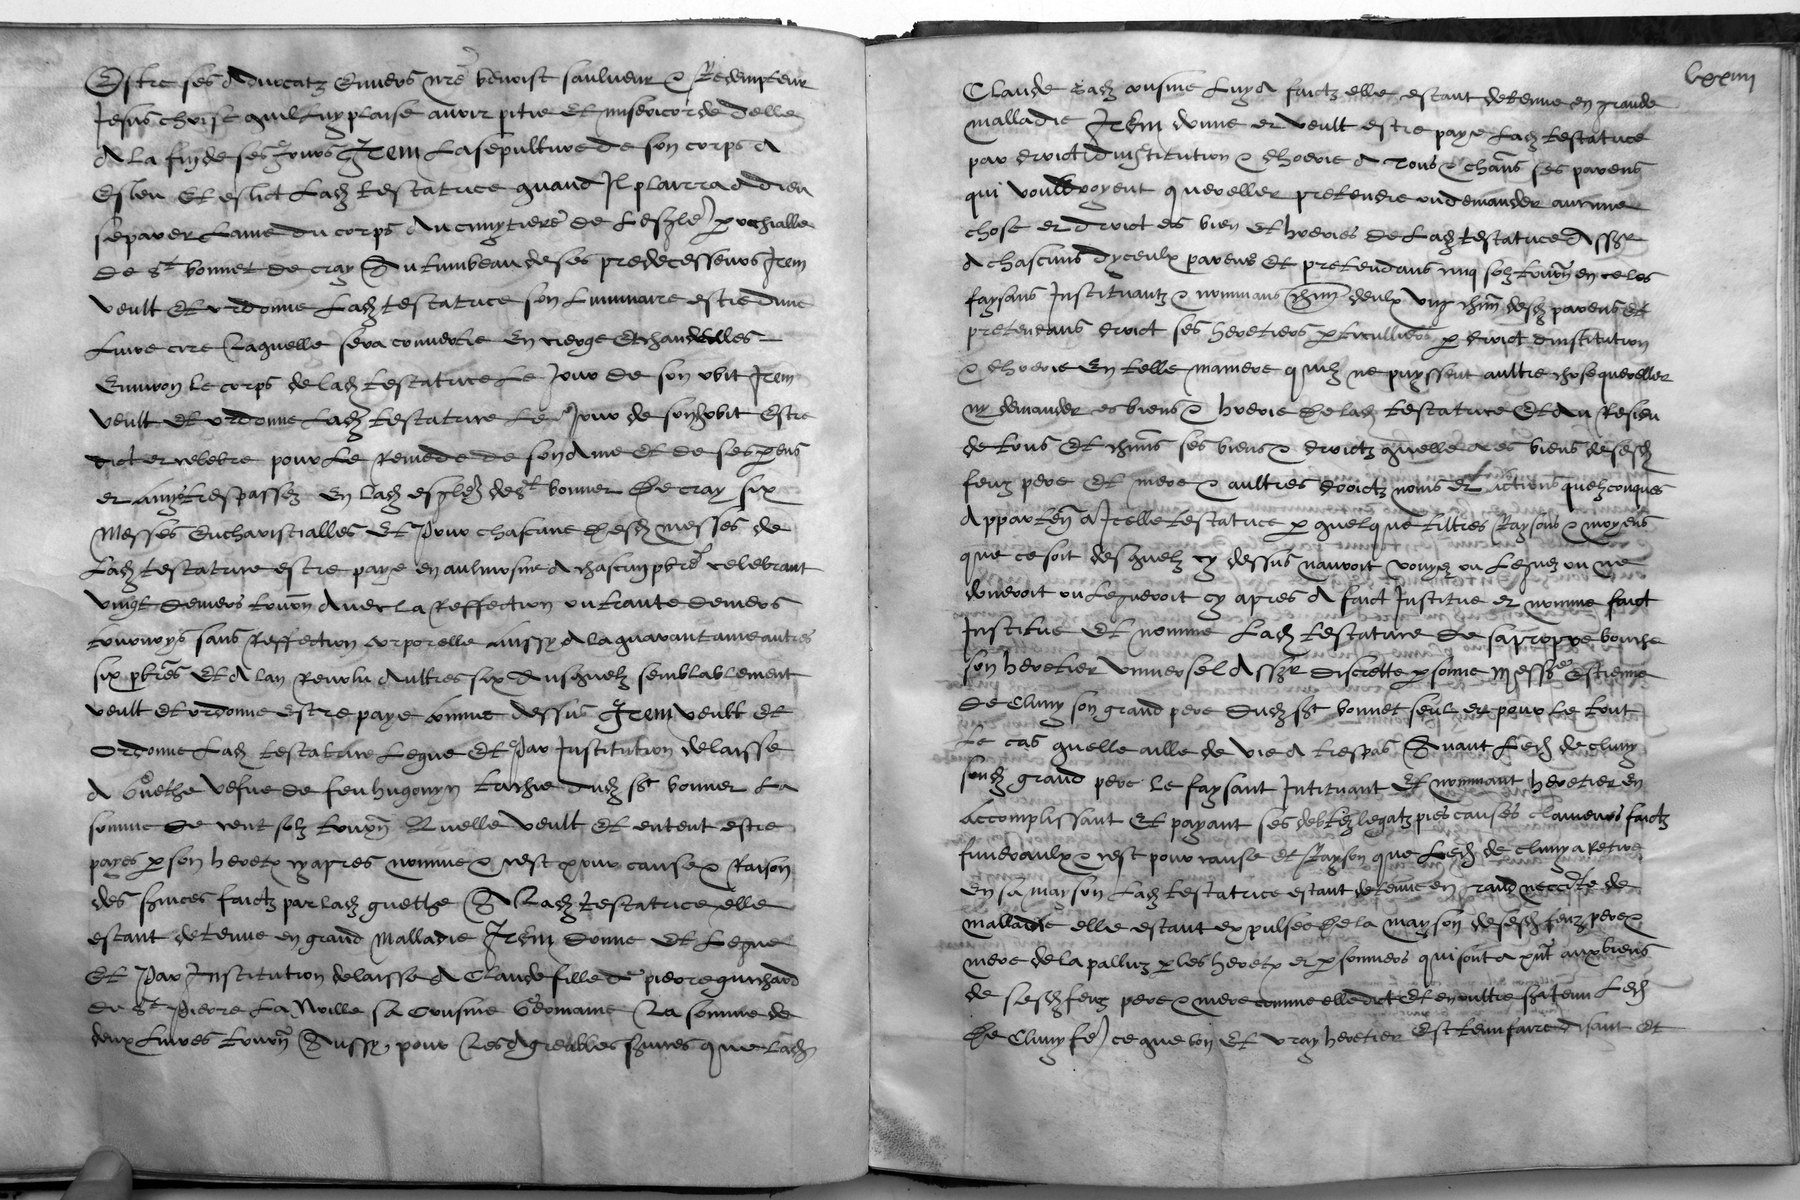 Estre ses advocatz envers nre benoist saulveur & Redempteur
Jesus christ quil luy plaise avoir pitie et misericorde delle
a la fin de ses jours Item la sepulture de son corps a
Esleu et eslict lad testatrice quand Il plairra a dieu
separer lame du corps au cimytiere de leglé parrochialle
de St bonnet de cray Au tumbeau de ses predecesseurs Item
veult et ordonne lad testatrice son luminaire estre dune
livre cire laquelle sera convertie en cierge et chandelles
Environ le corps de lad testatrice le jour de son obit Item
veult et ordonne lad testatrice le jour de son obit Estre
dict et celebre pour le Remede de son ame et de ses pens
et amys trespassez en lad esglé de St bonnet de cray six
Messes Eucharistialles et pour chascune desd messes de
lad testatrice estre paye en aulmosne a chascun pbre celebrant
vingt deniers tourn avec la Reffection ou trante deniers
tournoys sans Reffection corporelle Aussy a la quarantaine autres
six pbres et a lan Revolu aultres six Ausquelz semblablement
veult et ordonne estre paye comme dessus Item veult et
Ordonne lad testatrice legue et par Institution delaisse
a Guethe vefve de feu hugonyn dud St bonnet la
somme de cent solz tourn quelle veult et entent estre
payes p son heretr cy apres nomme & cest pour cause & Raison
des svices faictz par lad guethe A lad testatrice elle
estant detenue en grand Malladie Item donne et legue
Et par Institution delaisse a Claude fille de pierre guichard
de St pierre la Noille sa Cousine Germaine la somme de
deux livres tourn Aussy pour les agreables svices que lad
lxxiiii
Claude sad cousine luy a faictz elle estant detenue en grande
malladie Item donne et veult estre paye lad testatrice
par droict dinstitution & dhoerie a tous & chans ses parens
qui vouldroyent quereller pretendre ou demander aucune
chose et droict es bien et hoeries de lad testatrice Assr
a chascuns dyceulx parens et pretendans cinq solz tourn en ce les
faysans Instituantz & nommans chun deulx ung chun desd parens et
pretendans droict ses heretiers particulliers p droict dinstitution
& dhoerie En telle maniere quilz ne puyssent aultre chose quereller
ny demander es biens & hoerie de lad testatrice Et Au Residu
de tous et chuns ses biens & droictz quelle a es biens de sesd
feuz pere et mere & aultres droictz noms et actions quelzconques
Appartena a Icelle testatrice p quelque tiltres Raysons & moyens
que ce soit desquelz cy dessus nauroit donne ou legue ou ne
donneroit ou legueroit cy apres A faict Institue et nomme faict
Institue et nomme lad testatrice de sa proppre bouche
son heretier Universel Assr discrette psonne Messe Estienne
de Cluny son grand pere dud St bonnet seul et pour le tout
le cas quelle aille de vie a trespas Avant led de cluny
sond grand pere le faysant Intituant et nommant heretier en
Accomplissant et payant ses debtz legatz pies causes clameurs faictz
funeraulx & cest pour cause et Rayson que led de cluny a retire
en sa mayson lad testatrice estant detenue en grand neccite de
malladie elle estant expulsee de la mayson de sesd feuz pere &
mere de la palluz p les heretr et psonnes qui sont a pnt aux biens
de sesd feuz pere & mere comme elle dict et en oultre sa tenu led
de Cluny fe ce que bon et vray heretier est tenu faire disant et